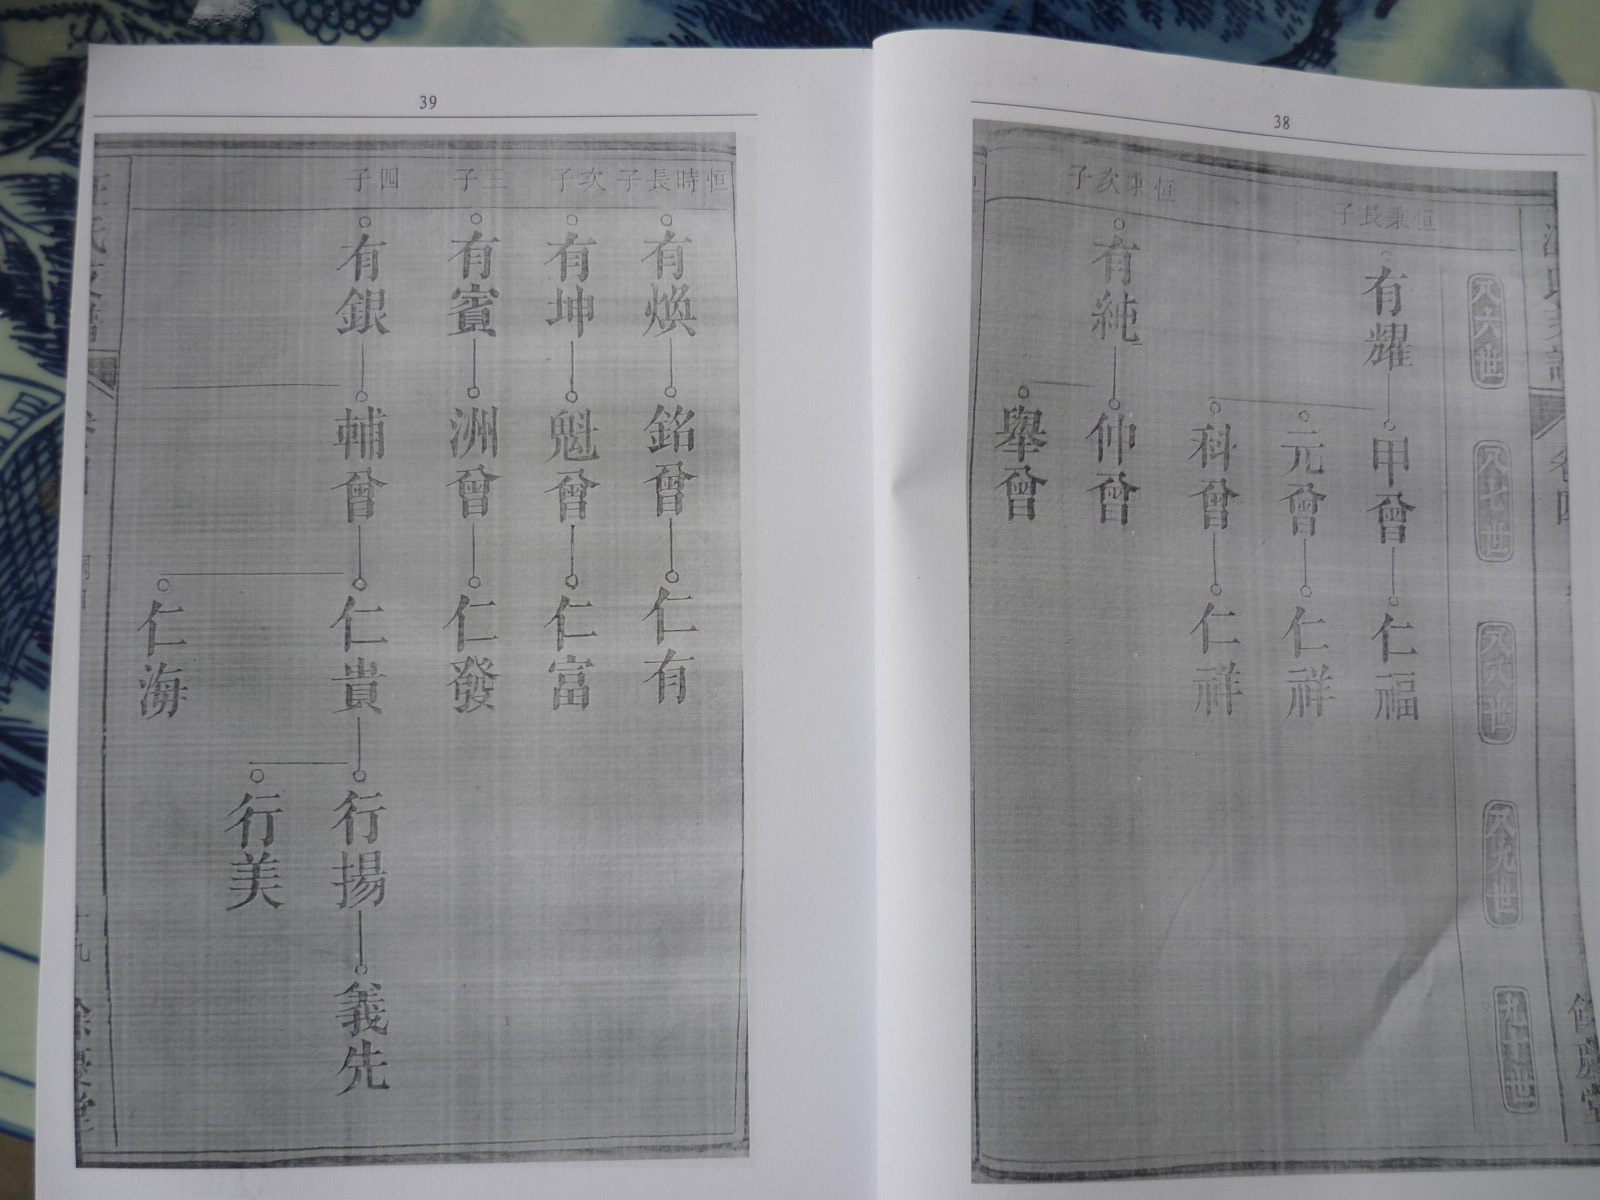 38
卷四
餘慶堂
八六世
八七世
八八世
八九世
九十世
恒秉長子
有耀
甲曾
仁福
元曾
仁祥
科曾
仁祥
恒秉次子
有純
仲曾
舉曾
39
恒時長子
有煥
銘曾
仁有
次子
有坤
魁曾
仁富
三子
有賓
洲曾
仁發
四子
有銀
輔曾
仁貴
行揚
義先
行美
仁海
餘慶堂